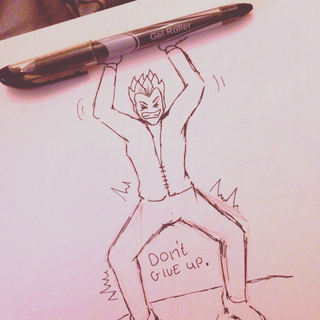 Gel Roller
Don't
GIVE UP.